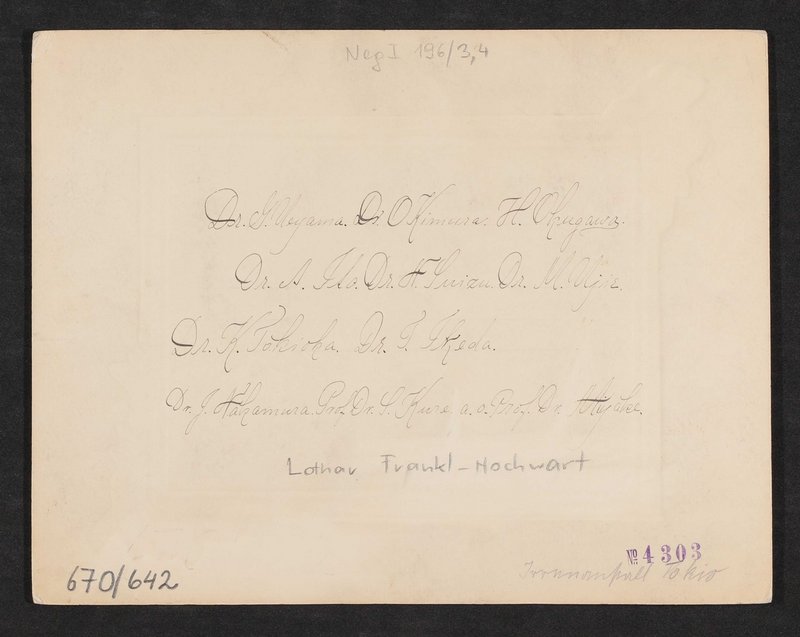 Neg I 196/3,4
Dr. G. Ueyama. Dr. O Kimura. H. Okugawa.
Dr. A. Ito. Dr. H. Suizu. Dr. M. Ujie.
Dr. K. Tokioka. Dr. T. Ikeda.
Dr. J. Nakamura. Prof. Dr. S. Kure, a. o. Prof. Dr. Miyake.
Lothar Frankl-Hochwart
670/642
№ 4303
Irrenanstalt Tokio